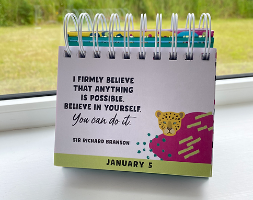 I FIRMLY BELIEVE
THAT ANYTHING
IS POSSIBLE.
BELIEVE IN YOURSELF.
You can do it.
SIR RICHARD BRANSON
JANUARY 5